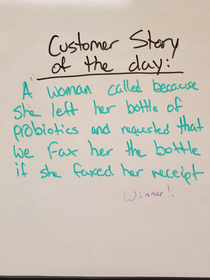 Customer Story
of the day:
A woman called because
she left her bottle of
probiotics and requested that
we fax her the bottle
if she faxed her receipt
Winner!